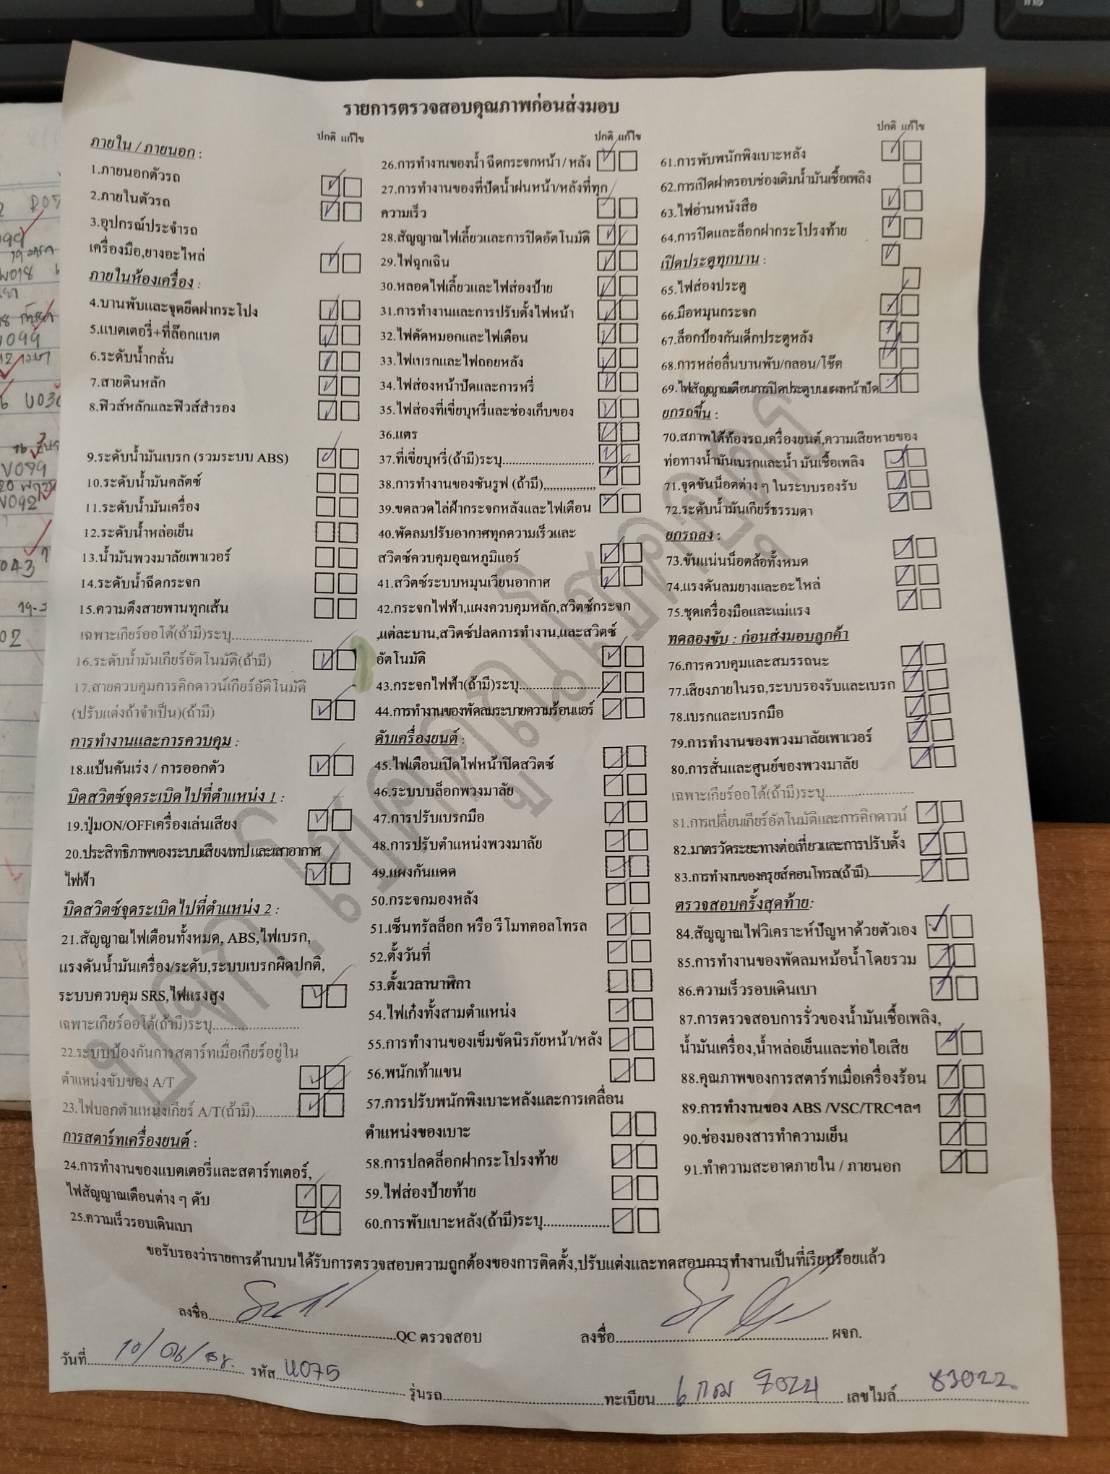 รายการตรวจสอบคุณภาพก่อนส่งมอบ
ปกติ แก้ไข
ภายใน / ภายนอก :
1.ภายนอกตัวรถ
2.ภายในตัวรถ
3.อุปกรณ์ประจำรถ
เครื่องมือ,ยางอะไหล่
ภายในห้องเครื่อง :
4.บานพับและจุดยึดฝากระโปง
5.แบตเตอรี่+ที่ล๊อกแบต
6.ระดับน้ำกลั่น
7.สายดินหลัก
8.ฟิวส์หลักและฟิวส์สำรอง
9.ระดับน้ำมันเบรก (รวมระบบ ABS)
10.ระดับน้ำมันคลัตซ์
11.ระดับน้ำมันเครื่อง
12.ระดับน้ำหล่อเย็น
13.น้ำมันพวงมาลัยเพาเวอร์
14.ระดับน้ำฉีดกระจก
15.ความตึงสายพานทุกเส้น
เฉพาะเกียร์ออโต้(ถ้ามี)ระบุ....................
16.ระดับน้ำมันเกียร์อัตโนมัติ(ถ้ามี)
17.สายควบคุมการคิกดาวน์เกียร์อัตโนมัติ
(ปรับแต่งถ้าจำเป็น)(ถ้ามี)
การทำงานและการควบคุม :
18.แป้นคันเร่ง / การออกตัว
บิดสวิตซ์จุดระเบิดไปที่ตำแหน่ง 1 :
19.ปุ่มON/OFFเครื่องเล่นเสียง
20.ประสิทธิภาพของระบบเสียง,เทป และเสาอากาศ
ไฟฟ้า
บิดสวิตซ์จุดระเบิดไปที่ตำแหน่ง 2 :
21.สัญญาณไฟเตือนทั้งหมด, ABS,ไฟเบรก,
แรงดันน้ำมันเครื่อง/ระดับ,ระบบเบรกผิดปกติ,
ระบบควบคุม SRS,ไฟแรงสูง
เฉพาะเกียร์ออโต้(ถ้ามี)ระบุ....................
22.ระบบป้องกันการสตาร์ทเมื่อเกียร์อยู่ใน
ตำแหน่งขับของ A/T
23.ไฟบอกตำแหน่งเกียร์ A/T(ถ้ามี)..........
การสตาร์ทเครื่องยนต์ :
24.การทำงานของแบตเตอรี่และสตาร์ทเตอร์,
ไฟสัญญาณเตือนต่าง ๆ ดับ
25.ความเร็วรอบเดินเบา
ปกติ แก้ไข
26.การทำงานของน้ำ ฉีดกระจกหน้า / หลัง
27.การทำงานของที่ปัดน้ำฝนหน้า/หลังที่ทุก
ความเร็ว
28.สัญญาณไฟเลี้ยวและการปิดอัตโนมัติ
29.ไฟฉุกเฉิน
30.หลอดไฟเลี้ยวและไฟส่องป้าย
31.การทำงานและการปรับตั้งไฟหน้า
32.ไฟตัดหมอกและไฟเตือน
33.ไฟเบรกและไฟถอยหลัง
34.ไฟส่องหน้าปัดและการหรี่
35.ไฟส่องที่เขี่ยบุหรี่และช่องเก็บของ
36.แตร
37.ที่เขี่ยบุหรี่(ถ้ามี)ระบุ......................
38.การทำงานของซันรูฟ (ถ้ามี)..............
39.ขดลวดไล่ฝ้ากระจกหลังและไฟเตือน
40.พัดลมปรับอากาศทุกความเร็วและ
สวิตซ์ควบคุมอุณหภูมิแอร์
41.สวิตซ์ระบบหมุนเวียนอากาศ
42.กระจกไฟฟ้า,แผงควบคุมหลัก,สวิตซ์กระจก
,แต่ละบาน,สวิตซ์ปลดการทำงาน,และสวิตซ์
อัตโนมัติ
43.กระจกไฟฟ้า(ถ้ามี)ระบุ....................
44.การทำงานของพัดลมระบายความร้อนแอร์
ดับเครื่องยนต์ :
45.ไฟเตือนเปิดไฟหน้าปิดสวิตซ์
46.ระบบบล็อกพวงมาลัย
47.การปรับเบรกมือ
48.การปรับตำแหน่งพวงมาลัย
49.แผงกันแดด
50.กระจกมองหลัง
51.เซ็นทรัลล็อก หรือ รีโมทคอลโทรล
52.ตั้งวันที่
53.ตั้งเวลานาฬิกา
54.ไฟเก๋งทั้งสามตำแหน่ง
55.การทำงานของเข็มขัดนิรภัยหน้า/หลัง
56.พนักเท้าแขน
57.การปรับพนักพิงเบาะหลังและการเคลื่อน
ตำแหน่งของเบาะ
58.การปลดล็อกฝากระโปรงท้าย
59.ไฟส่องป้ายท้าย
60.การพับเบาะหลัง(ถ้ามี)ระบุ................
ปกติ แก้ไข
61.การพับพนักพิงเบาะหลัง
62.การเปิดฝาครอบช่องเติมน้ำมันเชื้อเพลิง
63.ไฟอ่านหนังสือ
64.การปิดและล็อกฝากระโปรงท้าย
เปิดประตูทุกบาน :
65.ไฟส่องประตู
66.มือหมุนกระจก
67.ล็อกป้องกันเด็กประตูหลัง
68.การหล่อลื่นบานพับ/กลอน/โช๊ค
69.ไฟสัญญาณเตือนการปิดประตูบนแผงหน้าปัด
ยกรถขึ้น :
70.สภาพใต้ท้องรถ,เครื่องยนต์,ความเสียหายของ
ท่อทางน้ำมันเบรกและน้ำ มันเชื้อเพลิง
71.จุดขันน็อตต่าง ๆ ในระบบรองรับ
72.ระดับน้ำมันเกียร์ธรรมดา
ยกรถลง :
73.ขันแน่นน็อตล้อทั้งหมด
74.แรงดันลมยางและอะไหล่
75.ชุดเครื่องมือและแม่แรง
ทดลองขับ : ก่อนส่งมอบลูกค้า
76.การควบคุมและสมรรถนะ
77.เสียงภายในรถ,ระบบรองรับและเบรก
78.เบรกและเบรกมือ
79.การทำงานของพวงมาลัยเพาเวอร์
80.การสั่นและศูนย์ของพวงมาลัย
เฉพาะเกียร์ออโต้(ถ้ามี)ระบุ....................
81.การเปลี่ยนเกียร์อัตโนมัติและการคิกดาวน์
82.มาตรวัดระยะทางต่อเที่ยวและการปรับตั้ง
83.การทำงานของครุยส์คอนโทรล(ถ้ามี)
ตรวจสอบครั้งสุดท้าย:
84.สัญญาณไฟวิเคราะห์ปัญหาด้วยตัวเอง
85.การทำงานของพัดลมหม้อน้ำโดยรวม
86.ความเร็วรอบเดินเบา
87.การตรวจสอบการรั่วของน้ำมันเชื้อเพลิง,
น้ำมันเครื่อง,น้ำหล่อเย็นและท่อไอเสีย
88.คุณภาพของการสตาร์ทเมื่อเครื่องร้อน
89.การทำงานของ ABS /VSC/TRCฯลฯ
90.ช่องมองสารทำความเย็น
91.ทำความสะอาดภายใน / ภายนอก
ขอรับรองว่ารายการด้านบนได้รับการตรวจสอบความถูกต้องของการติดตั้ง,ปรับแต่งและทดสอบการทำงานเป็นที่เรียบร้อยแล้ว
ลงชื่อ....................QC ตรวจสอบ
ลงชื่อ.................... ผจก.
วันที่ รหัส U075 รุ่นรถ ทะเบียน 6 กฌ 7024 เลขไมล์ 83022